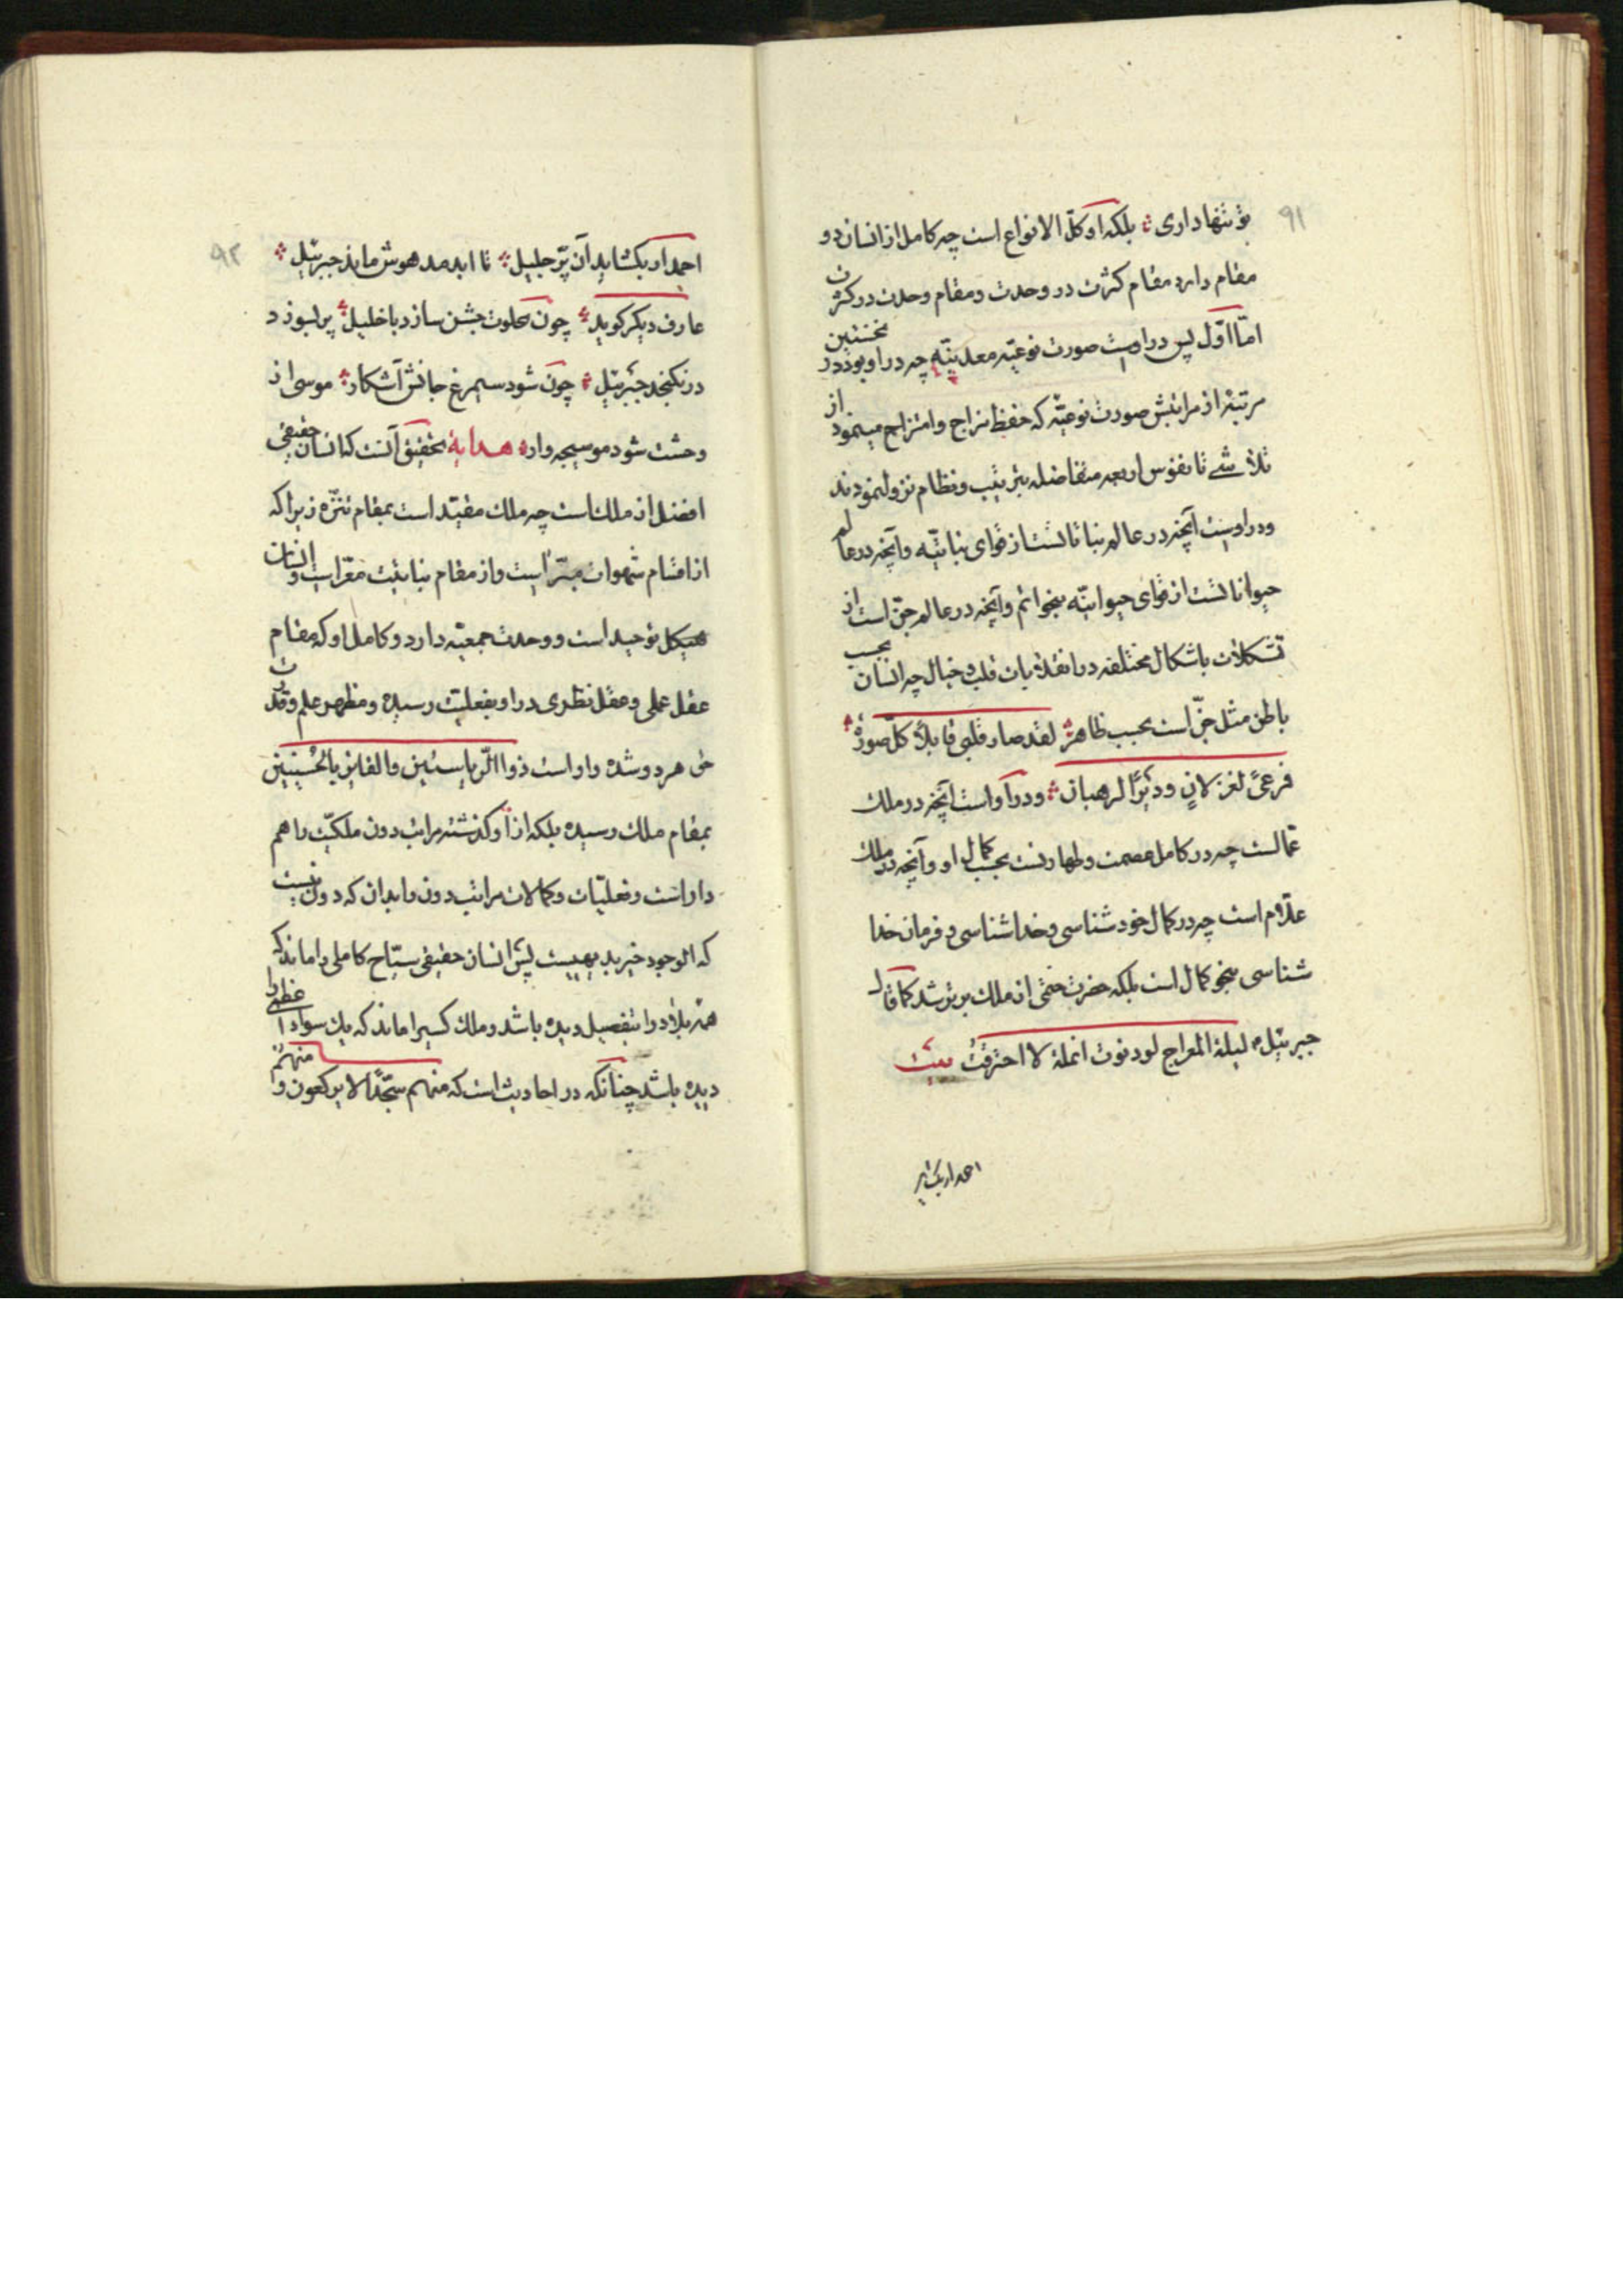 ۹۱
تو تنها داری بلکه او کلّ الانواع است چه کامل از انسان دو
مقام دارد مقام کثرت در وحدت و مقام وحدت در کثرت
امّا اوّل پس در اوست صورت نوعیّه معدنیّه چه در او بود در نخستین
مرتبه از مراتبش صورت نوعیّه که حفظ مزاج و امتزاج مینمود از
تلاشی تا نفوس اربعه متفاضله بترتیب و نظام نزول نمودند
و در اوست آنچه در عالم نباتاتست از قوای نباتیّه و آنچه در عالم
حیواناتست از قوای حیوانیّه بنحو اتم و آنچه در عالم جنّ است از
تشکلات باشکال مختلفه در انقلابات قلب و خیال چه انسان بحسب
باطن مثل جنّ است بحسب ظاهر لقد صار قلبی قابلاً کلّ صورة
فرعیً لغزلانٍ و دَیرًا لرهبان و در او است آنچه در ملک
عمالست چه در کامل عصمت و طهارتست بحسب کمال او و آنچه در ملک
علّام است چه در کمال خود شناسی و خدا شناسی و فرمان خدا
شناسی بنحو کمال است بلکه حضرت ختمی از ملک برتر شد کما قال
جبرئیل لیلة المعراج لو دنوت انملة لاحترقتُ بیت
احمد ار بگشاید
۹۲
احمد ار بگشاید آن پرّ جلیل تا ابد مدهوش ماند جبرئیل
عارف دیگر گوید چون بخلوت جشن سازد با خلیل پر بسوزد
در نگنجد جبرئیل چون شود سیمرغ جانش آشکار موسی از
وحشت شود موسیجه وار هدایة تحقیق آنست که انسان حقیقی
افضل از ملک است چه ملک مقیّد است بمقام تنزّه زیرا که
از اقسام شهوات مبرّا است و از مقام نباتیّت معرّاست و انسان
هیکل توحید است و وحدت جمعیّه دارد و کامل او که مقام
عقل عملی و عقل نظری در او بفعلیّت رسیده و مظهر علم و قدرت
حق هر دو شده و او است ذو الرّیاستین و الفایز بالحُسنیین
بمقام ملک رسیده بلکه از او گذشته مراتب دون ملکیّت را هم
داراست و فعلیّات و کمالات مراتب دون را بدان که دون نیست
که الوجود خیر بدیهیست پس انسان حقیقی سیّاح کاملی را ماند که
همه بلاد را بتفصیل دیده باشد و ملک کسی را ماند که یک سواد اعظمی را
دیده باشد چنانکه در احادیث است که منهم سجّدًا لا یرکعون و منهم